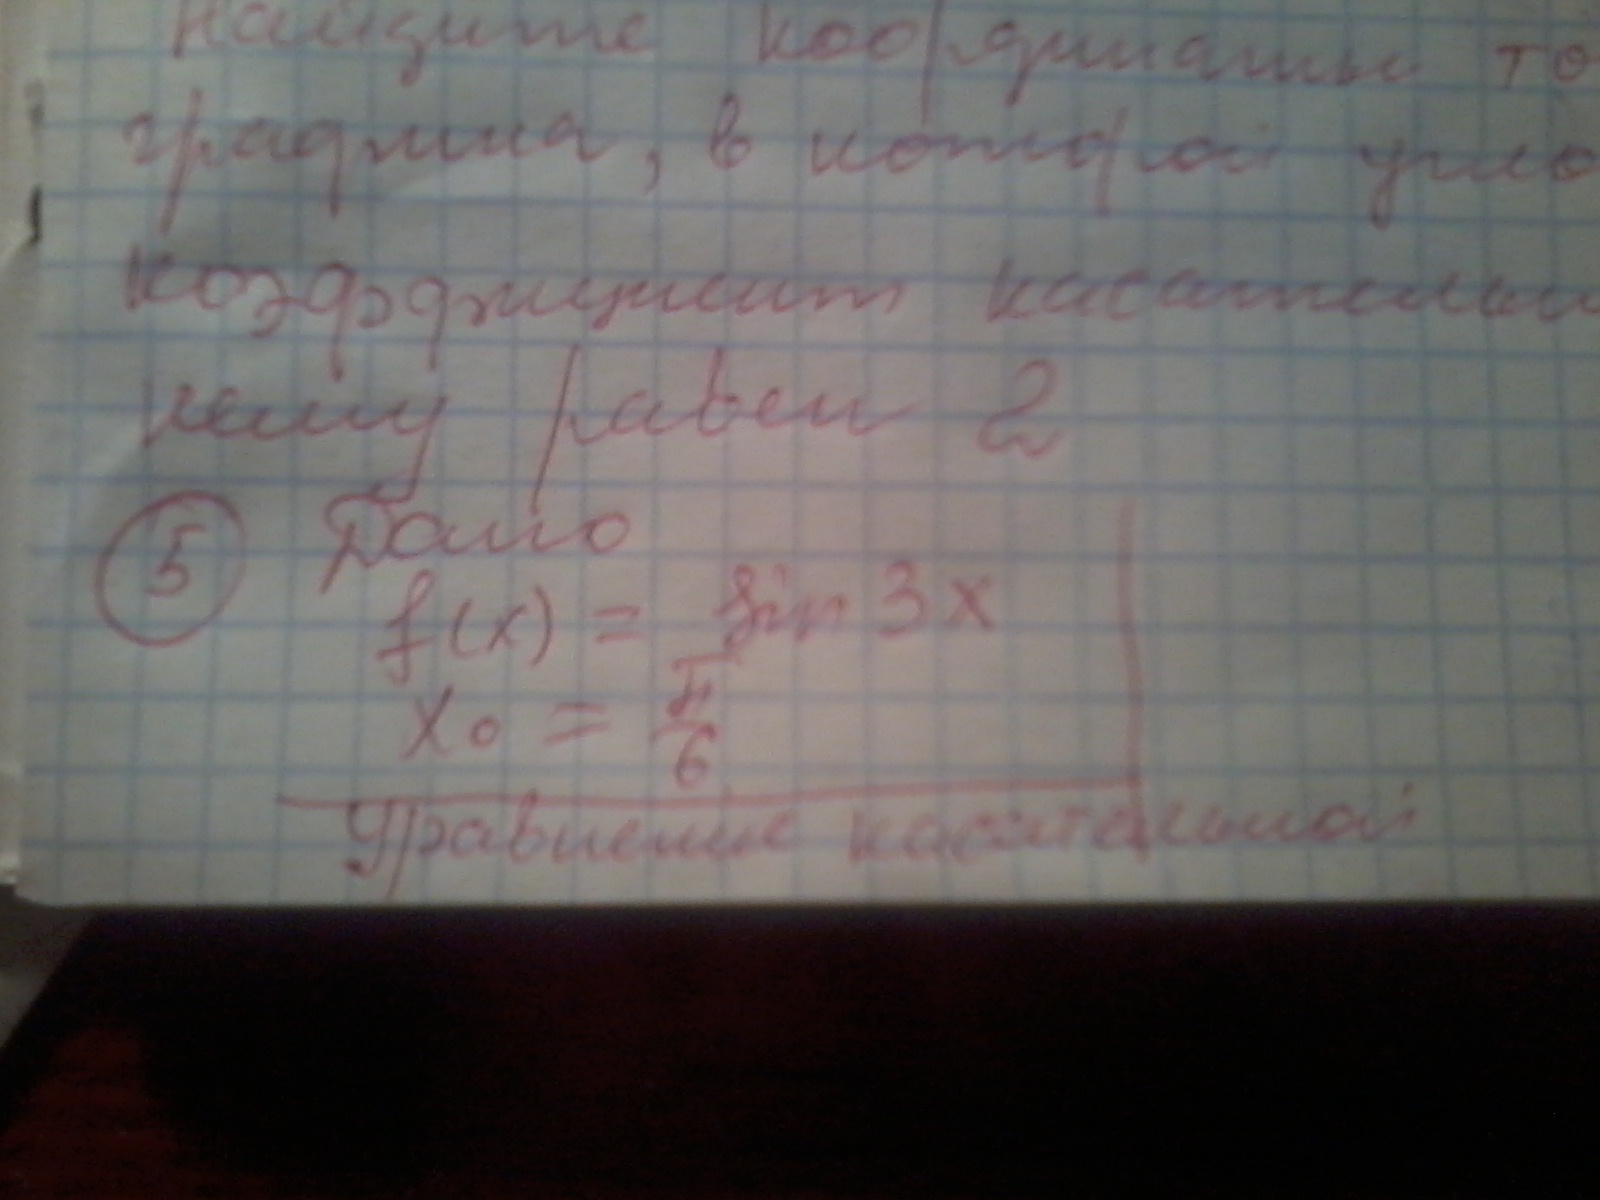 Найдите координаты то
графика, в которой угло
коэффициент касательн
нему равен 2
5 Дано
f(x) = sin 3x
x₀ = π/6
Уравнение касательной